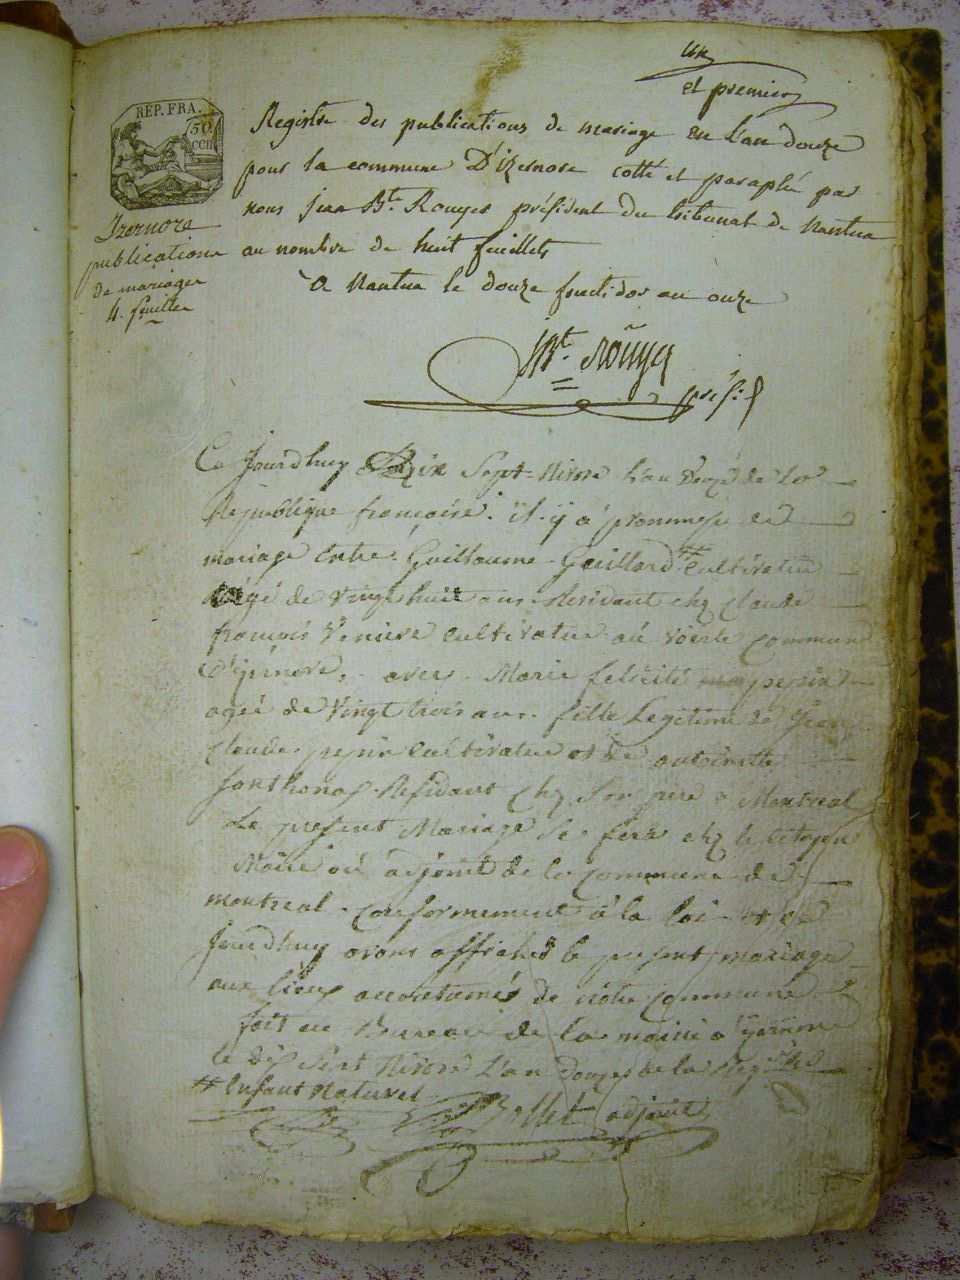 un
et premier
REP. FRA.
50
CEN
Registre des publications de mariage en l'an douze
pour la commune D'izernore cotté et paraphé par
nous jean Bte. Rouyer président du tribunal de Nantua
au nombre de huit feuillets
à Nantua le douze fructidor an onze
Izernore
publications
de mariages
4. feuilles
JBt. Roüyer
présid
Ce Jourdhuy Dix Sept Nivose l'an Douze de La
Republique françoise. il y a prommesse de
mariage Entre Guillaume Gaillard # cultivateur
agé de Vingt huit ans Residant chez Claude
françois cultivateur au commune
D'izernore, avec Marie felicité pepin
agée de Vingt trois ans fille Legitime de Jean
Claude pepin cultivateur et de antoinette
Residant chez Son pere a Montreal
Le present Mariage Se fera chez le citoyen
Maire ou adjoint de la commune de
montreal conformement à la loi et ce
Jourdhuy avons affiché le present mariage
aux lieux accoutumés de notre commune
fait au Bureau de la mairie a izernore
le dix Sept Nivose L'an Douze de la Repque
# Enfant Naturel
adjoint